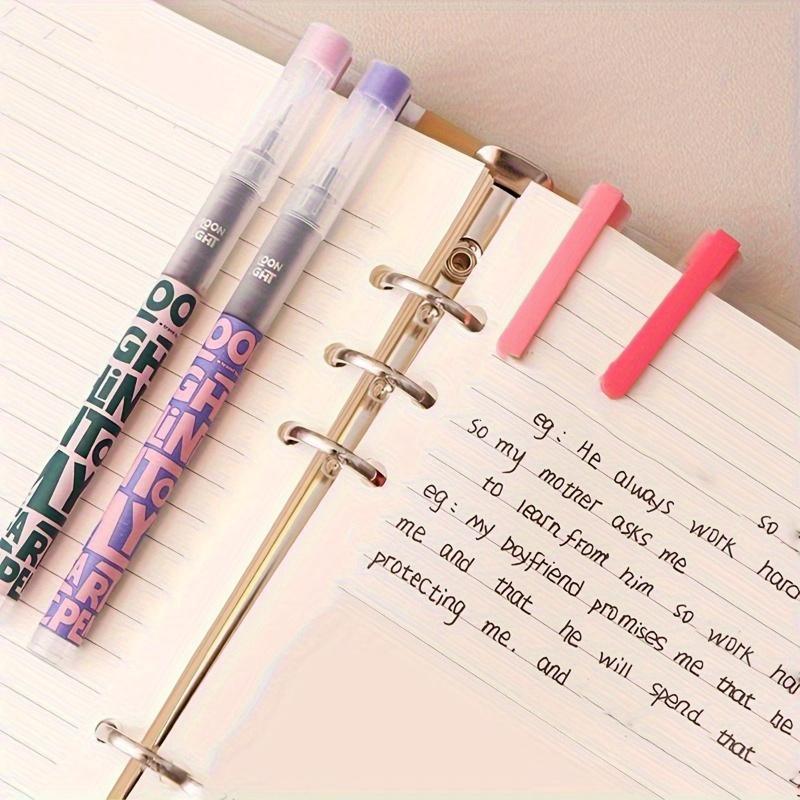 OON
GHT
OON
GHT
OO
GH
LIN
TO
OO
GH
LIN
TO
so
eg: He always work hard
so my mother asks me
to learn from him so work har
eg: My boyfriend promises me that he
me and that he will spend that
protecting me. and